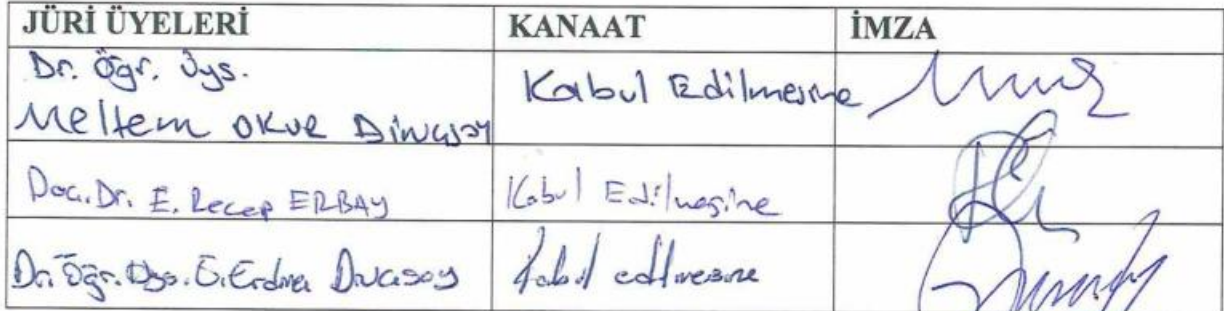 JÜRİ ÜYELERİ KANAAT İMZA
Dr. Öğr. Üys.
Meltem OKUR DİNÇSOY Kabul Edilmesine
Doç. Dr. E. Recep ERBAY Kabul Edilmesine
Dr. Öğr. Üys. Ö. Erdinç Dinçsoy Kabul edilmesine